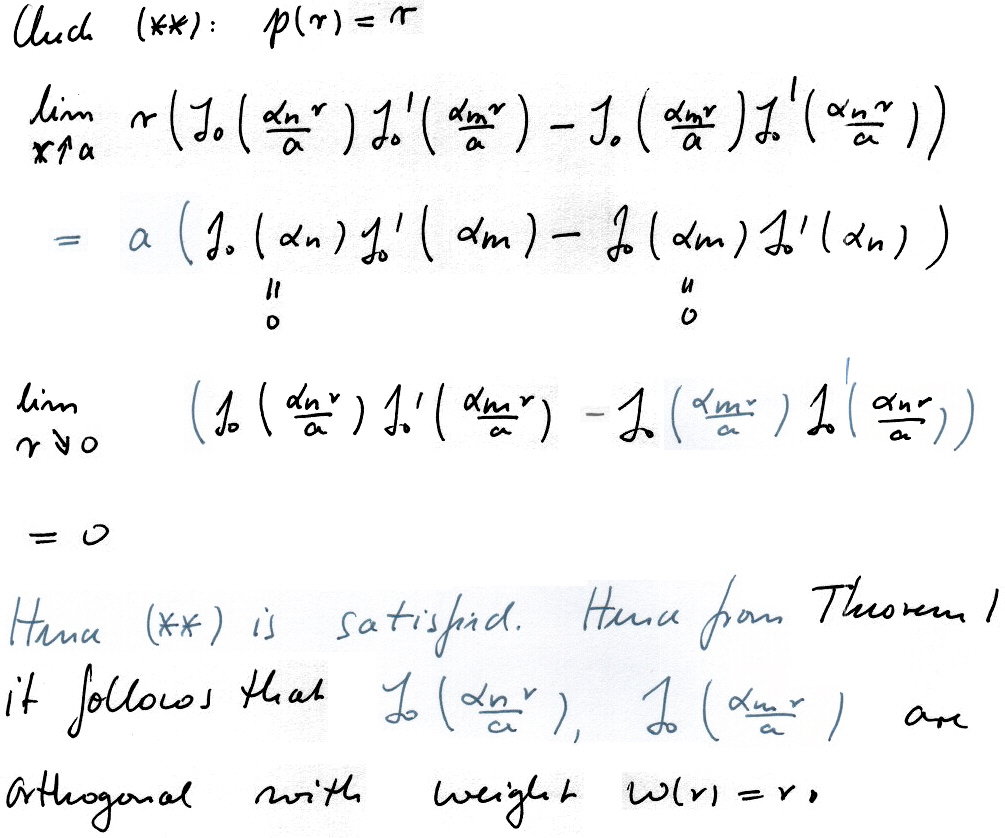 Check (**): p(r) = r
lim r (J₀(αₙr/a) J₀'(αₘr/a) − J₀(αₘr/a) J₀'(αₙr/a))
r↑a
= a (J₀(αₙ) J₀'(αₘ) − J₀(αₘ) J₀'(αₙ))
" "
0 0
lim (J₀(αₙr/a) J₀'(αₘr/a) − J₀(αₘr/a) J₀'(αₙr/a))
r↘0
= 0
Hence (**) is satisfied. Hence from Theorem 1
it follows that J₀(αₙr/a), J₀(αₘr/a) are
orthogonal with weight w(r) = r.